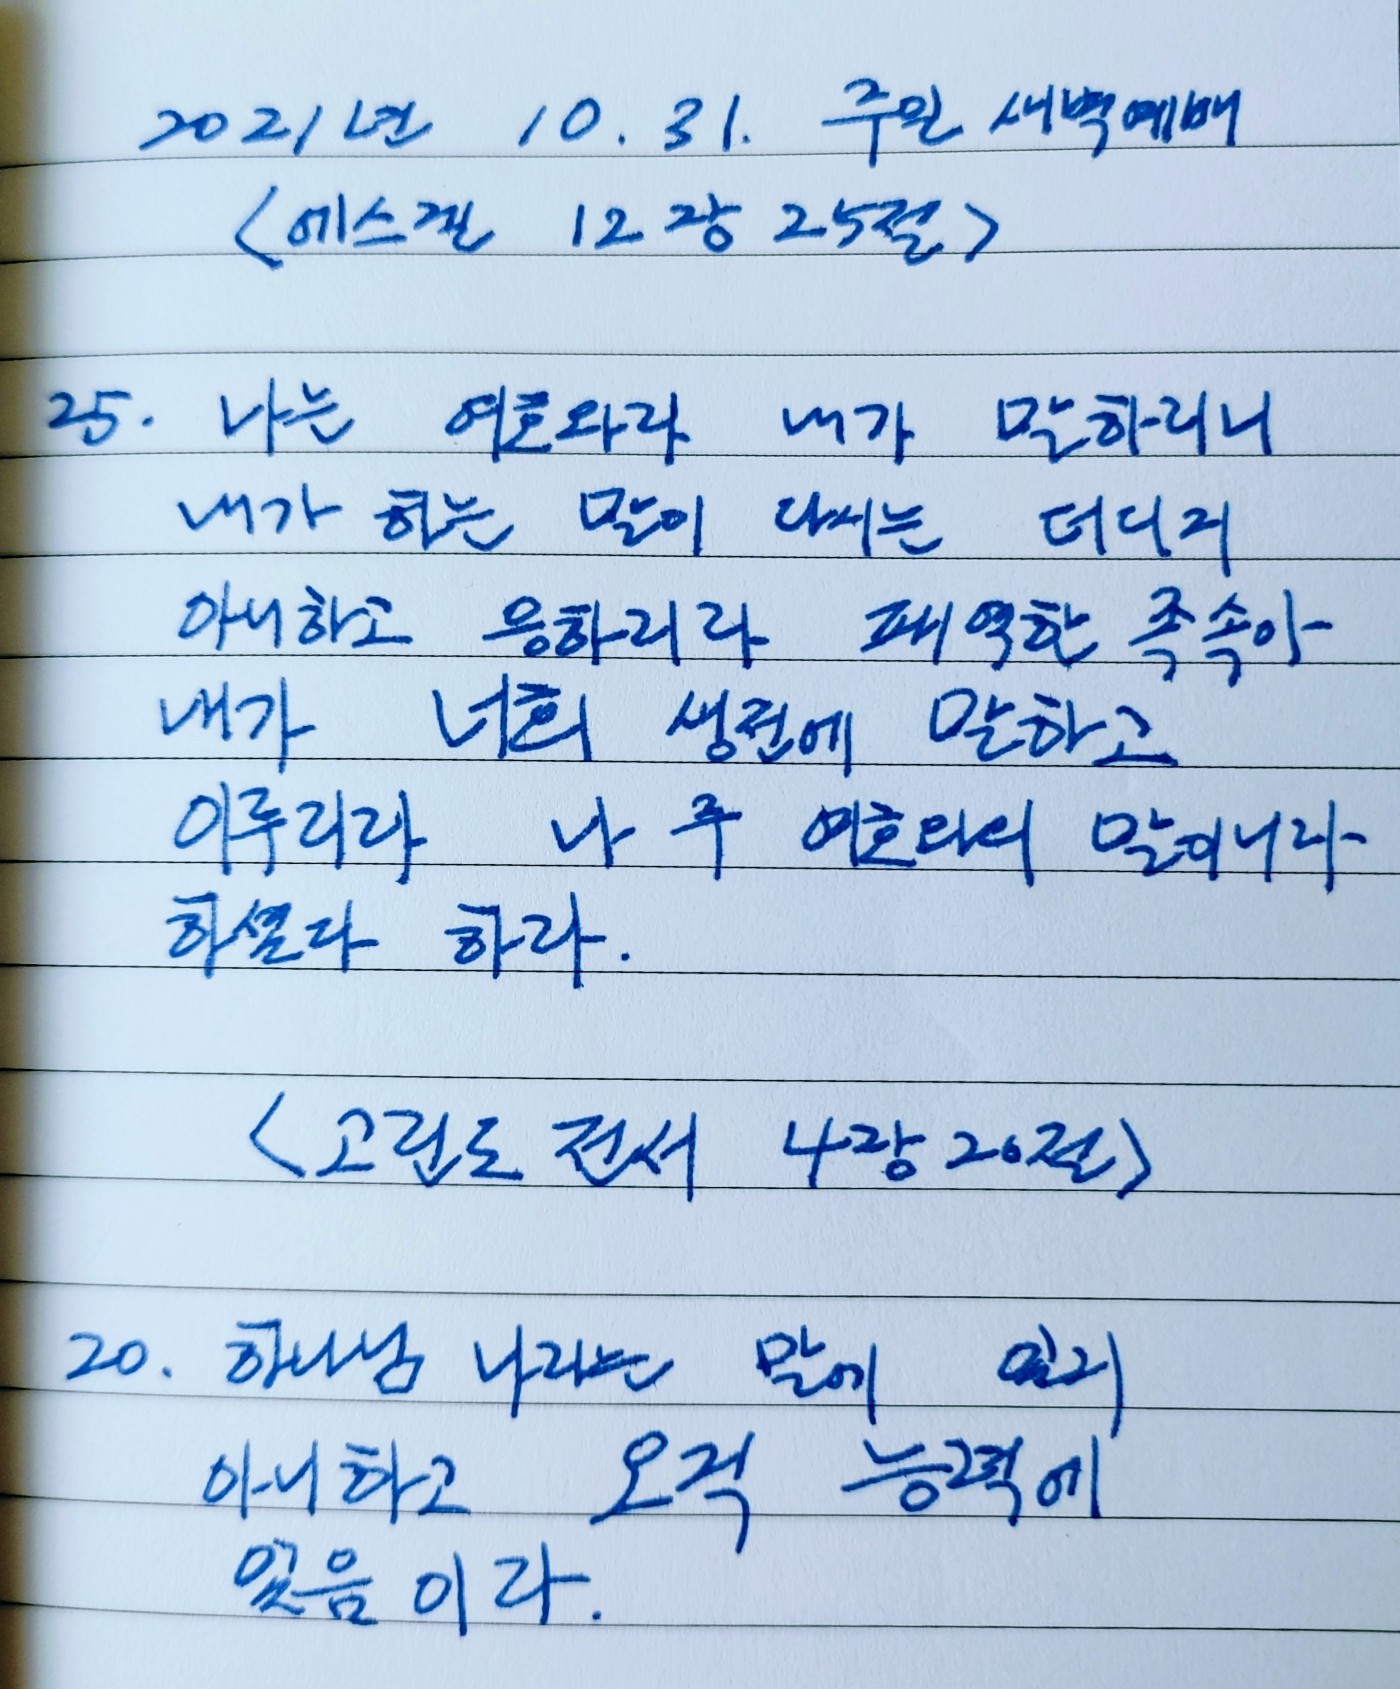 2021년 10.31. 주일 새벽예배
<에스겔 12장 25절>
25. 나는 여호와라 내가 말하리니
내가 하는 말이 다시는 더디지
아니하고 응하리라 패역한 족속아
내가 너희 생전에 말하고
이루리라 나 주 여호와의 말이니라
하셨다 하라.
<고린도전서 4장 20절>
20. 하나님 나라는 말에 있지
아니하고 오직 능력에
있음이라.